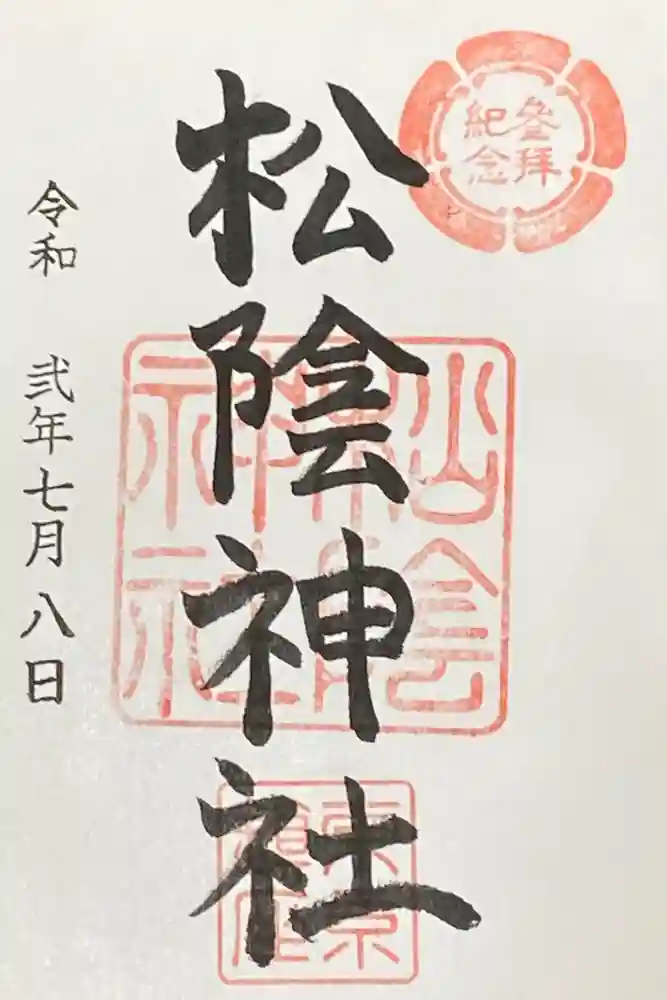 参拝
紀念
松陰神社
松陰
神社
東京
令和 弐年七月八日